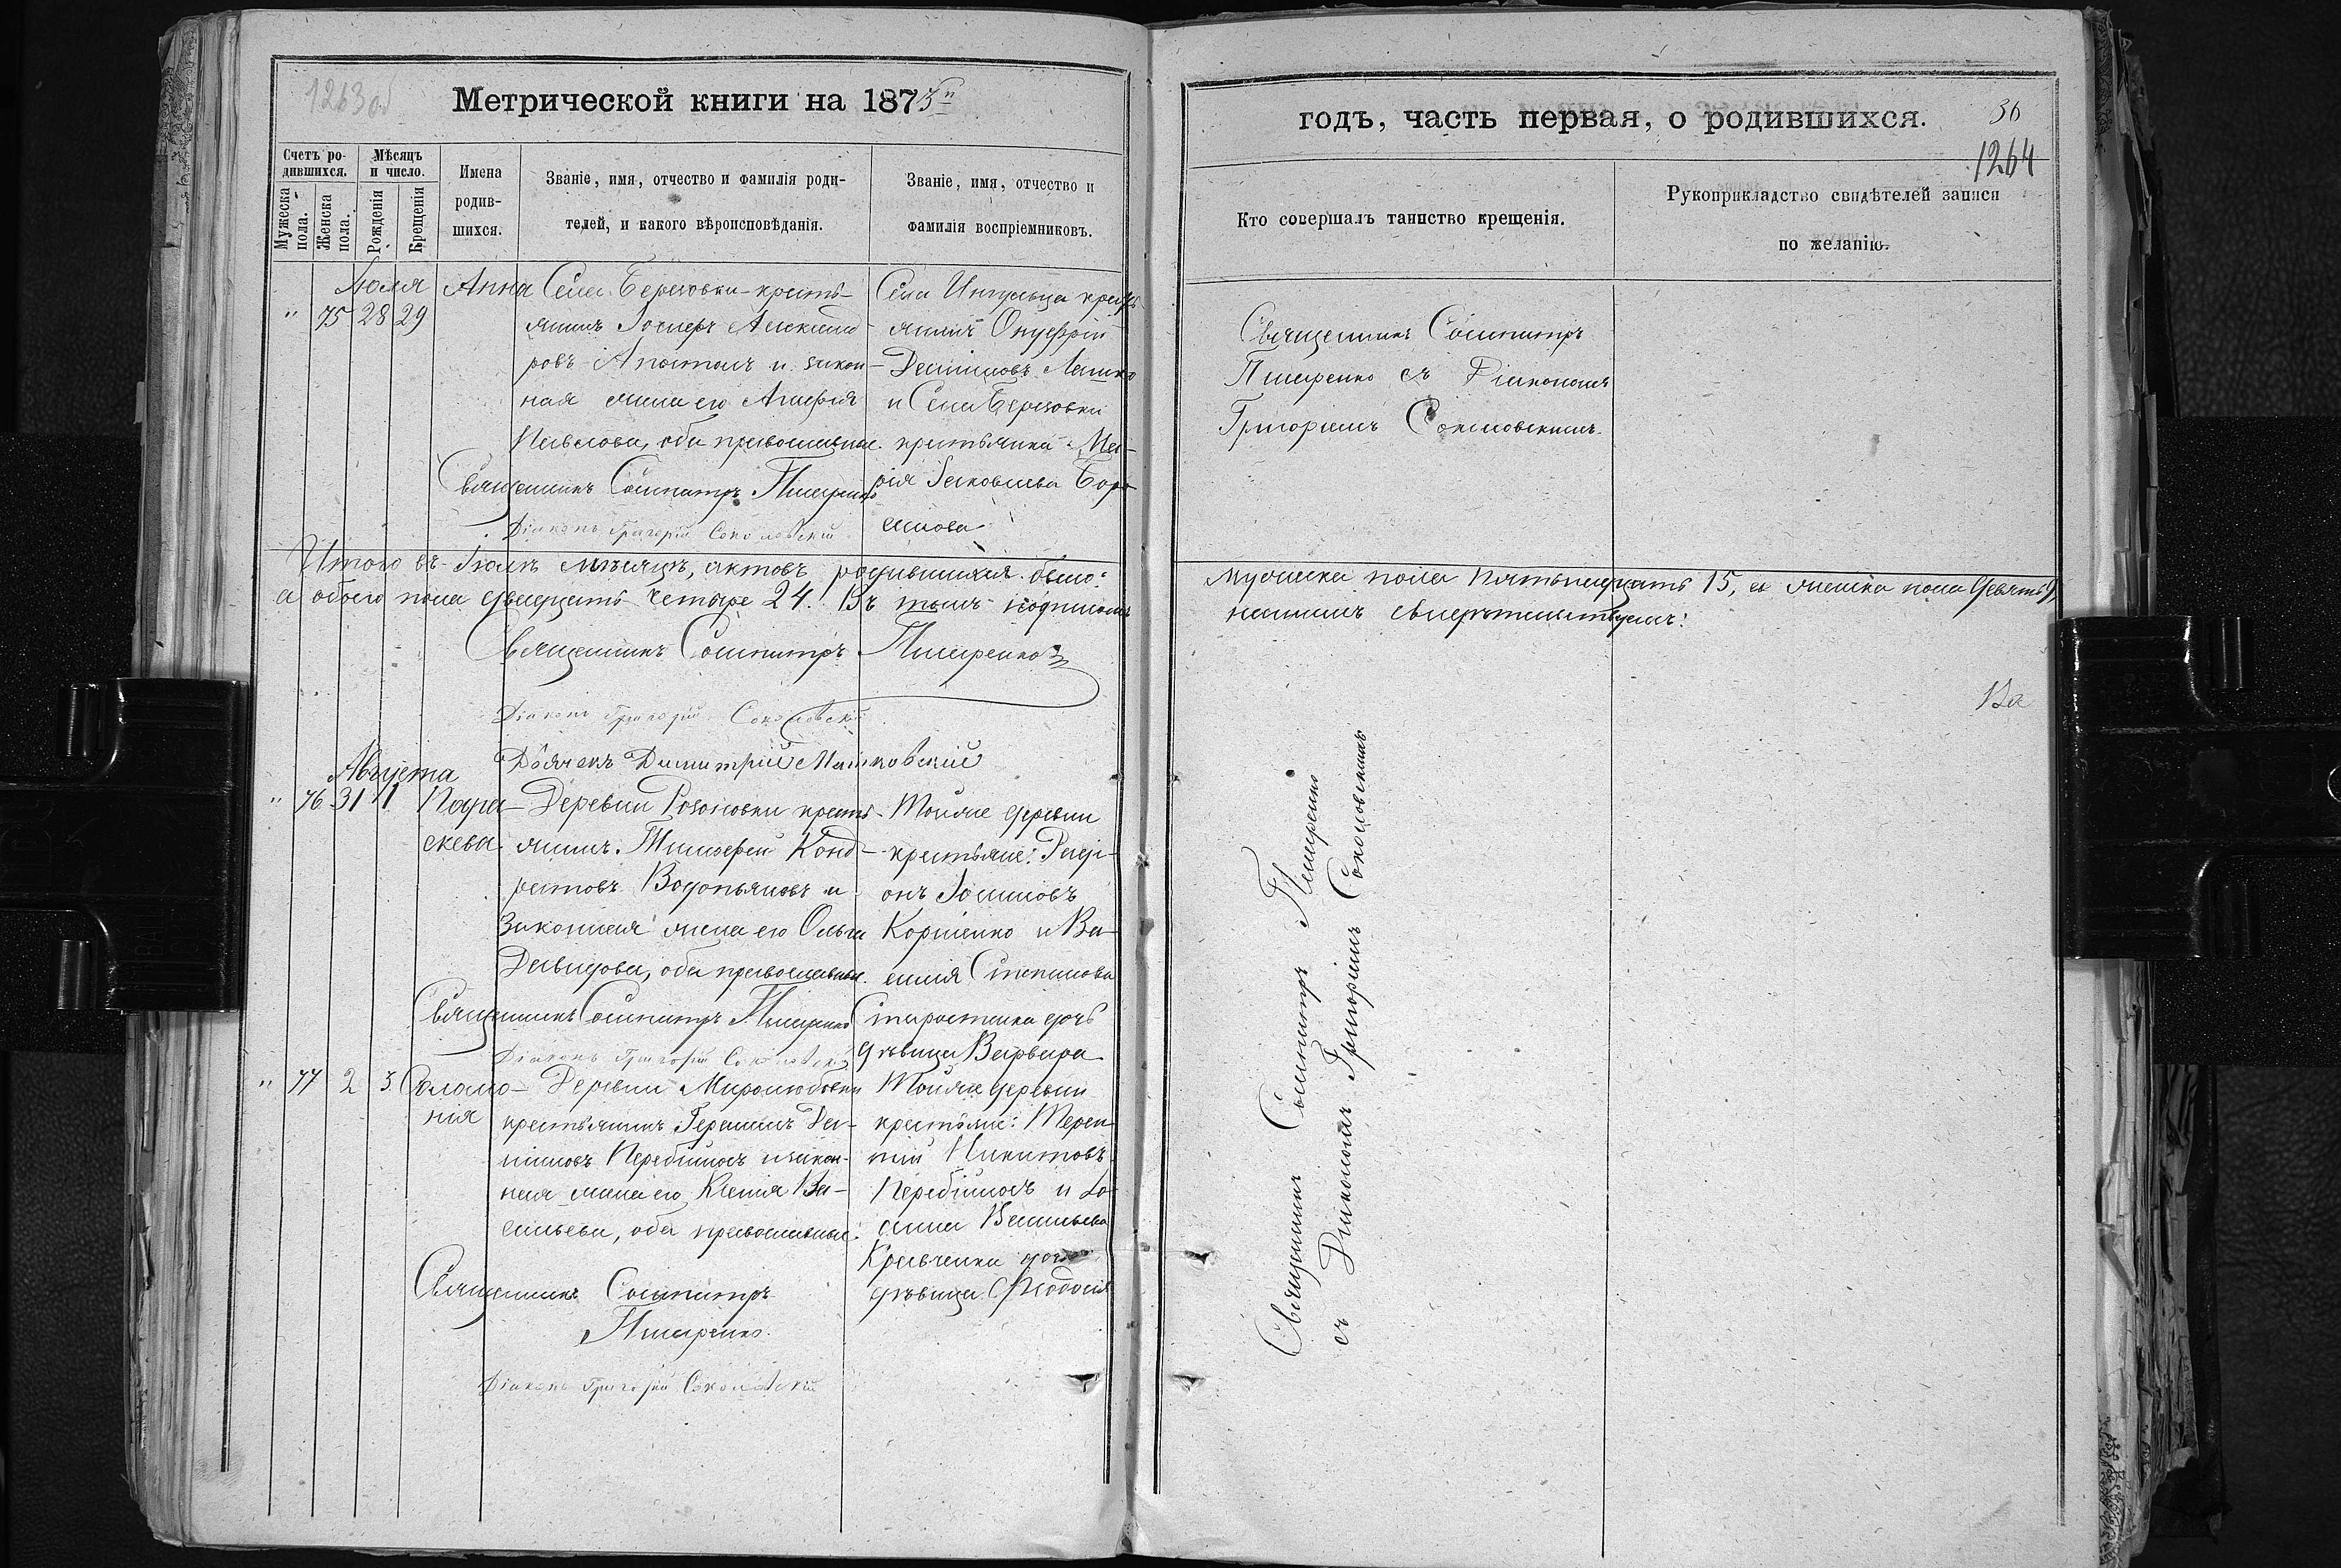 1263 об
Метрической книги на 1873й
Счетъ родившихся.
Мужеска пола.
Женска пола.
Мѣсяцъ и число.
Рожденія
Крещенія
Имена родившихся.
Званіе, имя, отчество и фамилія родителей, и какого вѣроисповѣданія.
Званіе, имя, отчество и фамилія воспріемниковъ.
Іюля
" 75 28 29
Анна
Села Березовки крестьянинъ
Александровъ Апостолъ и законная жена его Агафія
Павлова, оба православные.
Священникъ Сосипатръ Писаренко
Діаконъ Григорій Соколовскій
Села Ингульца крестьянинъ Онуфрій
и Села Березовки
крестьянка Марія Яковлева
Итого въ Іюлѣ мѣсяцѣ, актовъ родившихся было:
а обоего пола двадцать четыре 24. Въ томъ подписомъ
Священникъ Сосипатръ Писаренко
Діаконъ Григорій Соколовскій
Дьячекъ Димитрій
Августа
" 76 31 1
Параскева
Деревни крестьянинъ Тимофей Кондратовъ Водопьяновъ и
Законная жена его Ольга
Давидова, оба православные.
Священникъ Сосипатръ Писаренко
Діаконъ Григорій Соколовскій
Тойже деревни
крестьяне: Родіонъ
Корніенко и
Степанова
дочь
дѣвица Варвара
" 77 2 3
Соломонія
Деревни Миролюбовки
крестьянинъ Герасимъ
и законная жена его Ксенія Васильева, оба православные.
Священникъ Сосипатръ
Писаренко.
Діаконъ Григорій Соколовскій
Тойже деревни
крестьяне: Терентій Никитовъ
и
Васильева
Кравченка дочь
дѣвица Феодосія
годъ, часть первая, о родившихся.
36
1264
Кто совершалъ таинство крещенія.
Рукоприкладство свидѣтелей записи по желанію.
Священникъ Сосипатръ
Писаренко съ Діакономъ
Григоріемъ Соколовскимъ.
мужеска пола пятьнадцать 15, а женска пола девять 9,
нашимъ свидѣтельствуемъ:
Ва
Священникъ Сосипатръ Писаренко
съ Діакономъ Григоріемъ Соколовскимъ